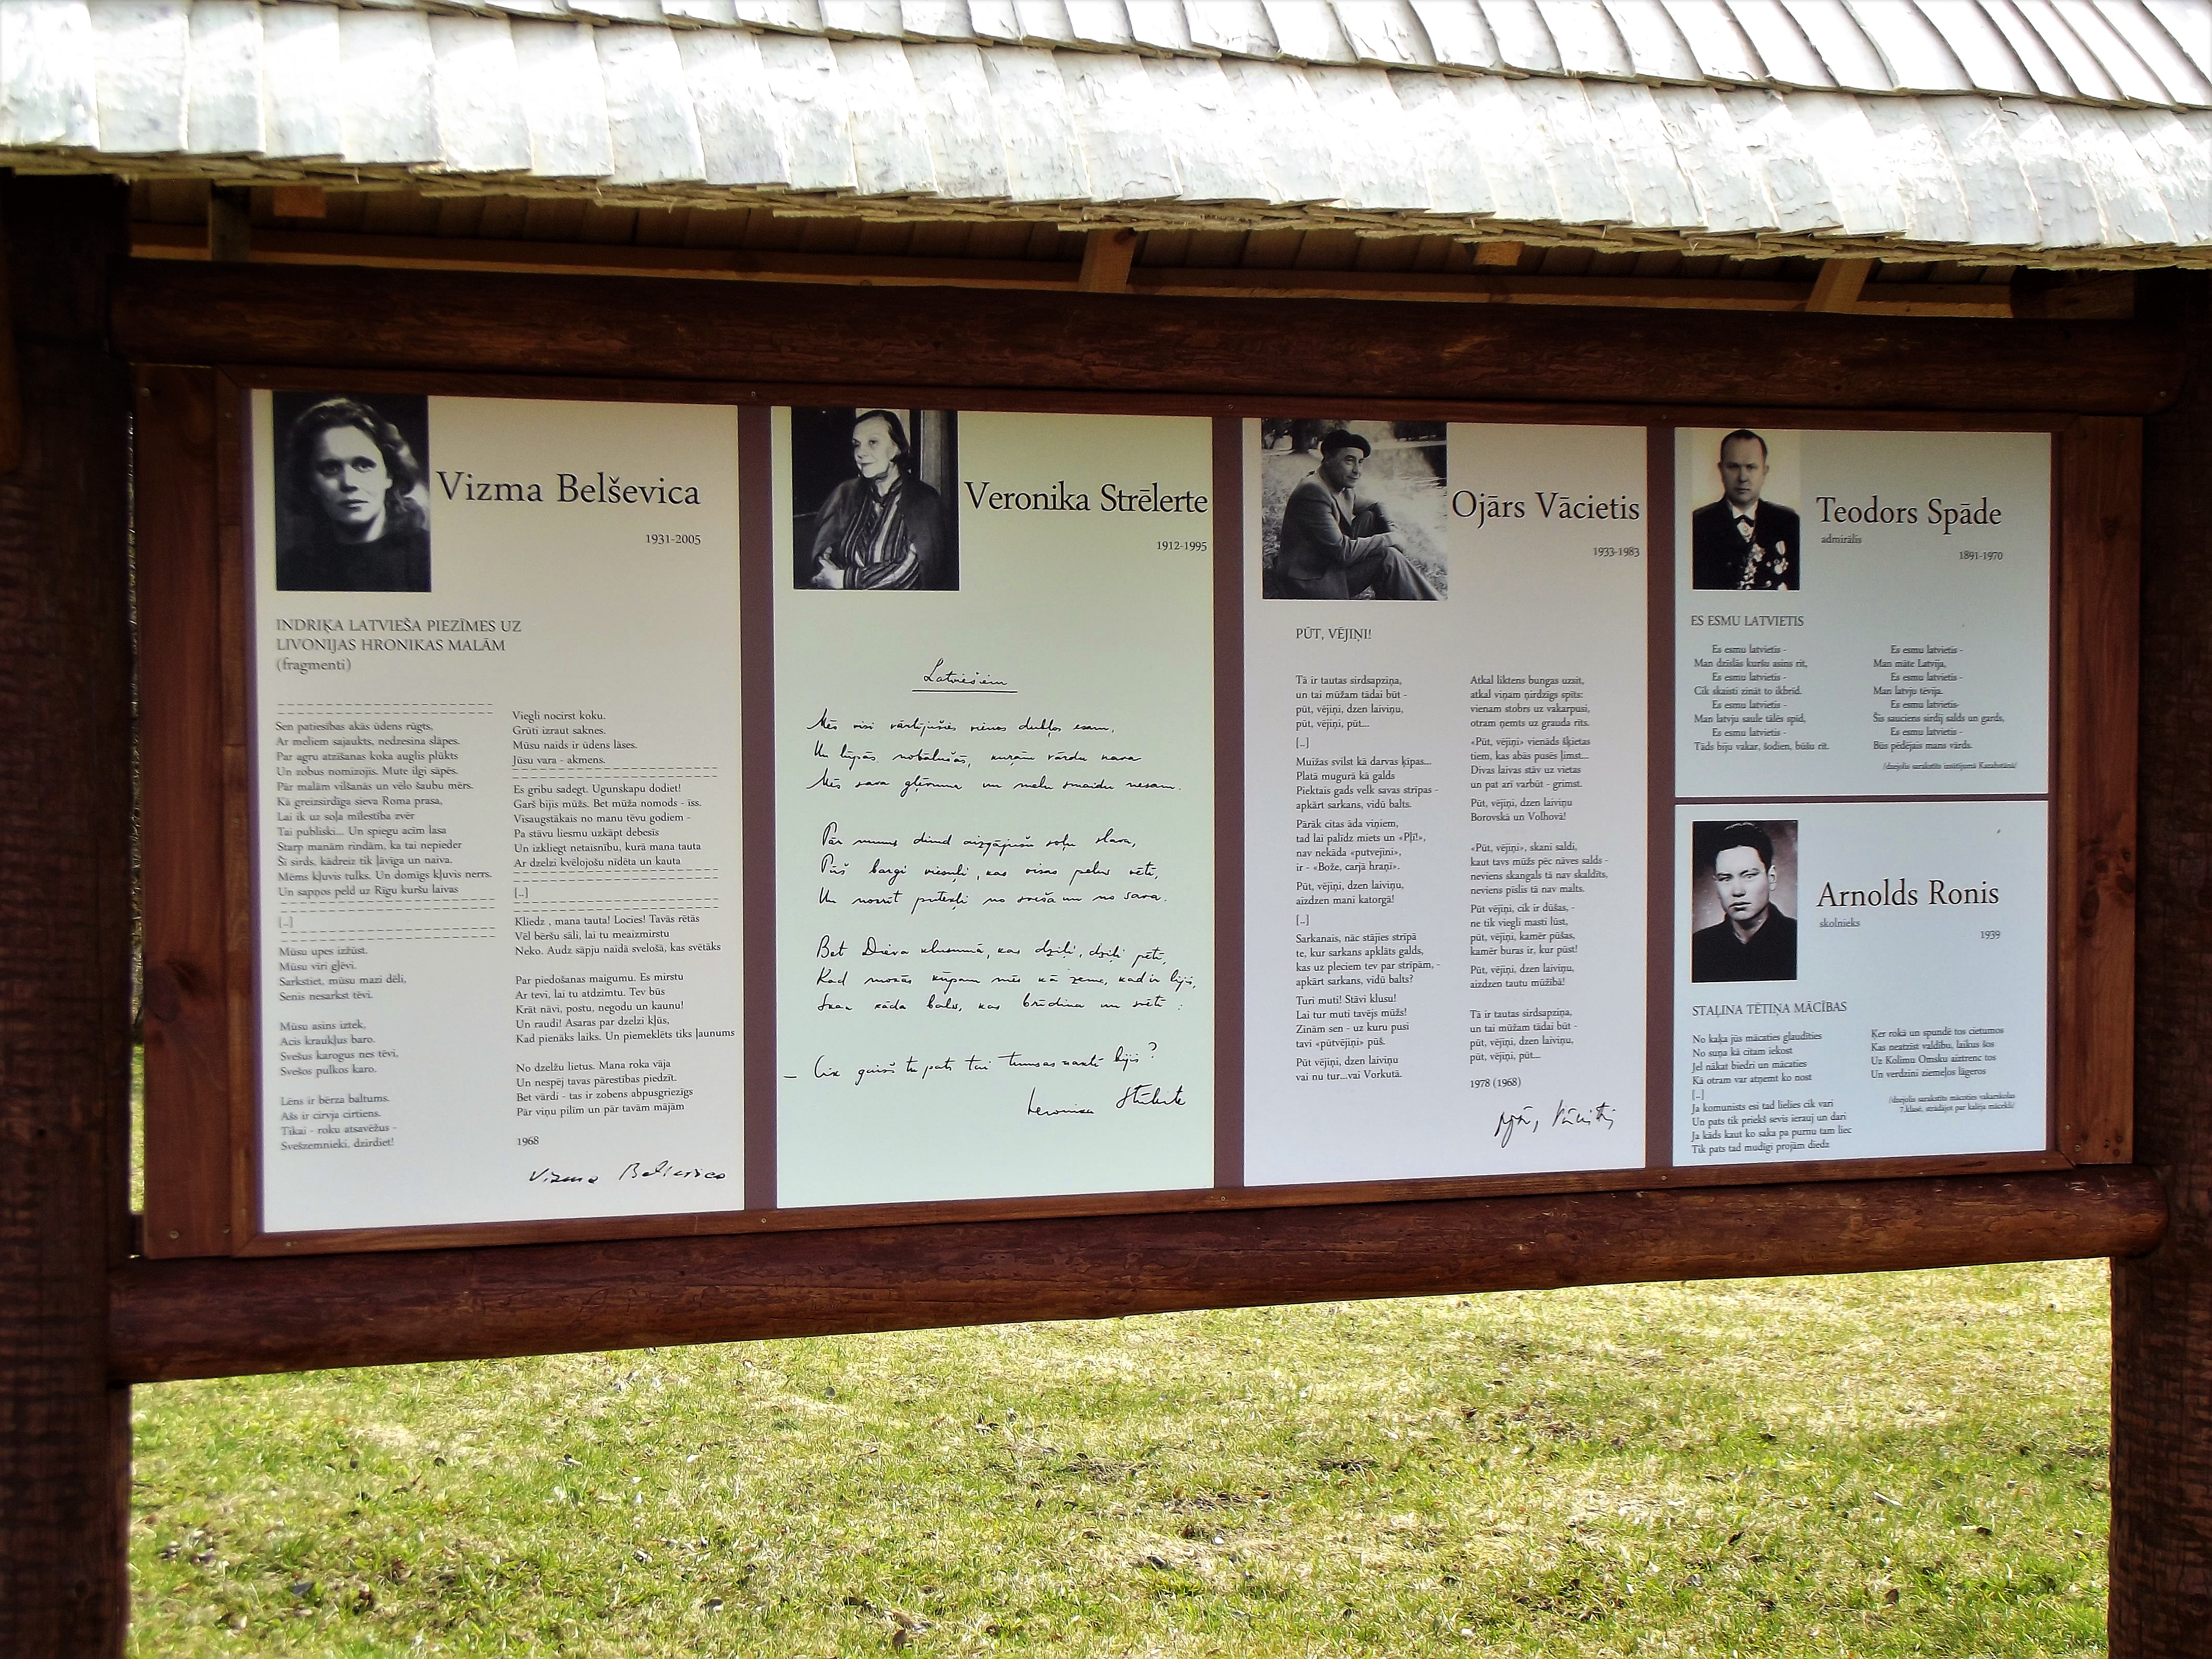 Vizma Belševica
1931-2005
INDRIĶA LATVIEŠA PIEZĪMES UZ
LIVONIJAS HRONIKAS MALĀM
(fragmenti)
Sen patiesības akās ūdens rūgts,
Ar meliem sajaukts, nedzesina slāpes.
Par agru atzīšanas koka auglis plūkts
Un zobus nomizojis. Mute ilgi sāpēs.
Pār malām vilšanās un vēlo šaubu mērs.
Kā greizsirdīga sieva Roma prasa,
Lai ik uz soļa mīlestība zvēr
Tai publiski... Un spiegu acīm lasa
Starp manām rindām, ka tai nepieder
Šī sirds, kādreiz tik ļāvīga un naiva.
Mēms kļuvis tulks. Un domīgs kļuvis nerrs.
Un sapņos peld uz Rīgu kuršu laivas
[..]
Mūsu upes izžūst.
Mūsu vīri gļēvi.
Sarkstiet, mūsu mazi dēli,
Senis nesarkst tēvi.
Mūsu asins iztek,
Acis kraukļus baro.
Svešus karogus nes tēvi,
Svešos pulkos karo.
Lēns ir bērza baltums.
Ašs ir cirvja cirtiens.
Tikai - roku atsavēžus -
Svešzemnieki, dzirdiet!
Viegli nocirst koku.
Grūti izraut saknes.
Mūsu naids ir ūdens lāses.
Jūsu vara - akmens.
Es gribu sadegt. Ugunskapu dodiet!
Garš bijis mūžs. Bet mūža nomods - īss.
Visaugstākais no manu tēvu godiem -
Pa stāvu liesmu uzkāpt debesīs
Un izkliegt netaisnību, kurā mana tauta
Ar dzelzi kvēlojošu nīdēta un kauta
[..]
Kliedz , mana tauta! Locies! Tavās rētās
Vēl bēršu sāli, lai tu meaizmirstu
Neko. Audz sāpju naidā svelošā, kas svētāks
Par piedošanas maigumu. Es mirstu
Ar tevi, lai tu atdzimtu. Tev būs
Krāt nāvi, postu, negodu un kaunu!
Un raudi! Asaras par dzelzi kļūs,
Kad pienāks laiks. Un piemeklēts tiks ļaunums
No dzelžu lietus. Mana roka vāja
Un nespēj tavas pārestības piedzīt.
Bet vārdi - tas ir zobens abpusgriezīgs
Pār viņu pilīm un pār tavām mājām
1968
Vizma Belševica
Veronika Strēlerte
1912-1995
Latviešiem
Mēs visi vārtījušies vienos dubļos esam,
Un lūpās nobālušās, kurām vārdu nava
Mēs sava gļēvuma un melu smaidu nesam.
Pār mums dimd aizgājušo soļu slava,
Pūš bargi viesuļi, kas visas pelus vētī,
Un norīt putekļi no sveša un no sava.
Bet Dieva klusumā, kas dziļi, dziļi pētī,
Kad mozās kūpam mēs kā zeme, kad ir lijis,
Skan kāda balss, kas brīdina un svētī:
— Cik gaišs tu pats tai tumsas naktī bijis?
Veronika Strēlerte
Ojārs Vācietis
1933-1983
PŪT, VĒJIŅI!
Tā ir tautas sirdsapziņa,
un tai mūžam tādai būt -
pūt, vējiņi, dzen laiviņu,
pūt, vējiņi, pūt...
[..]
Muižas svilst kā darvas ķipas...
Platā mugurā kā galds
Piektais gads velk savas strīpas -
apkārt sarkans, vidū balts.
Pārāk citas āda viņiem,
tad lai palīdz miets un «Pļi!»,
nav nekāda «putvejiņi»,
ir - «Bože, carjā hraņi».
Pūt, vējiņi, dzen laiviņu,
aizdzen mani katorgā!
[..]
Sarkanais, nāc stājies strīpā
te, kur sarkans apklāts galds,
kas uz pleciem tev par strīpām, -
apkārt sarkans, vidū balts?
Turi muti! Stāvi klusu!
Lai tur muti tavējs mūžs!
Zinām sen - uz kuru pusi
tavi «pūtvējiņi» pūš.
Pūt vējiņi, dzen laiviņu
vai nu tur...vai Vorkutā.
Atkal liktens bungas uzsit,
atkal viņam ņirdzīgs spīts:
vienam stobrs uz vakarpusi,
otram ņemts uz grauda rīts.
«Pūt, vējiņi» vienāds šķietas
tiem, kas abās pusēs ļimst...
Divas laivas stāv uz vietas
un pat arī varbūt - grimst.
Pūt, vējiņi, dzen laiviņu
Borovskā un Volhovā!
«Pūt, vējiņi», skani saldi,
kaut tavs mūžs pēc nāves salds -
neviens skangals tā nav skaldīts,
neviens pīslis tā nav malts.
Pūt vējiņi, cik ir dūšas, -
ne tik viegli masti lūst,
pūt, vējiņi, kamēr pūšas,
kamēr buras ir, kur pūst!
Pūt, vējiņi, dzen laiviņu,
aizdzen tautu mūžībā!
Tā ir tautas sirdsapziņa,
un tai mūžam tādai būt -
pūt, vējiņi, dzen laiviņu,
pūt, vējiņi, pūt...
1978 (1968)
Teodors Spāde
admirālis
1891-1970
ES ESMU LATVIETIS
Es esmu latvietis -
Man dzīslās kuršu asins rit,
Es esmu latvietis -
Cik skaisti zināt to ikbrīd.
Es esmu latvietis -
Man latvju saule tālēs spīd,
Es esmu latvietis -
Tāds biju vakar, šodien, būšu rīt.
Es esmu latvietis -
Man māte Latvija,
Es esmu latvietis -
Man latvju tēvija.
Es esmu latvietis-
Šis sauciens sirdij salds un gards,
Es esmu latvietis -
Būs pēdējais mans vārds.
(dzejolis sarakstīts izsūtījumā Kazahstānā)
Arnolds Ronis
skolnieks
1939
STAĻINA TĒTIŅA MĀCĪBAS
No kaķa jūs mācaties glaudīties
No suņa kā citam iekost
Jel nākat biedri un mācaties
Kā otram var atņemt ko nost
[..]
Ja komunists esi tad lielies cik vari
Un pats tik priekš sevis ierauj un dari
Ja kāds kaut ko saka pa purnu tam liec
Tik pats tad mudīgi projām diedz
Ķer rokā un spundē tos cietumos
Kas neatzīst valdību, laikus šos
Uz Kolimu Omsku aiztrenc tos
Un verdzini ziemeļos lāgeros
(dzejolis sarakstīts mācoties vakarskolas
7.klasē, strādājot par kalēja mācekli)